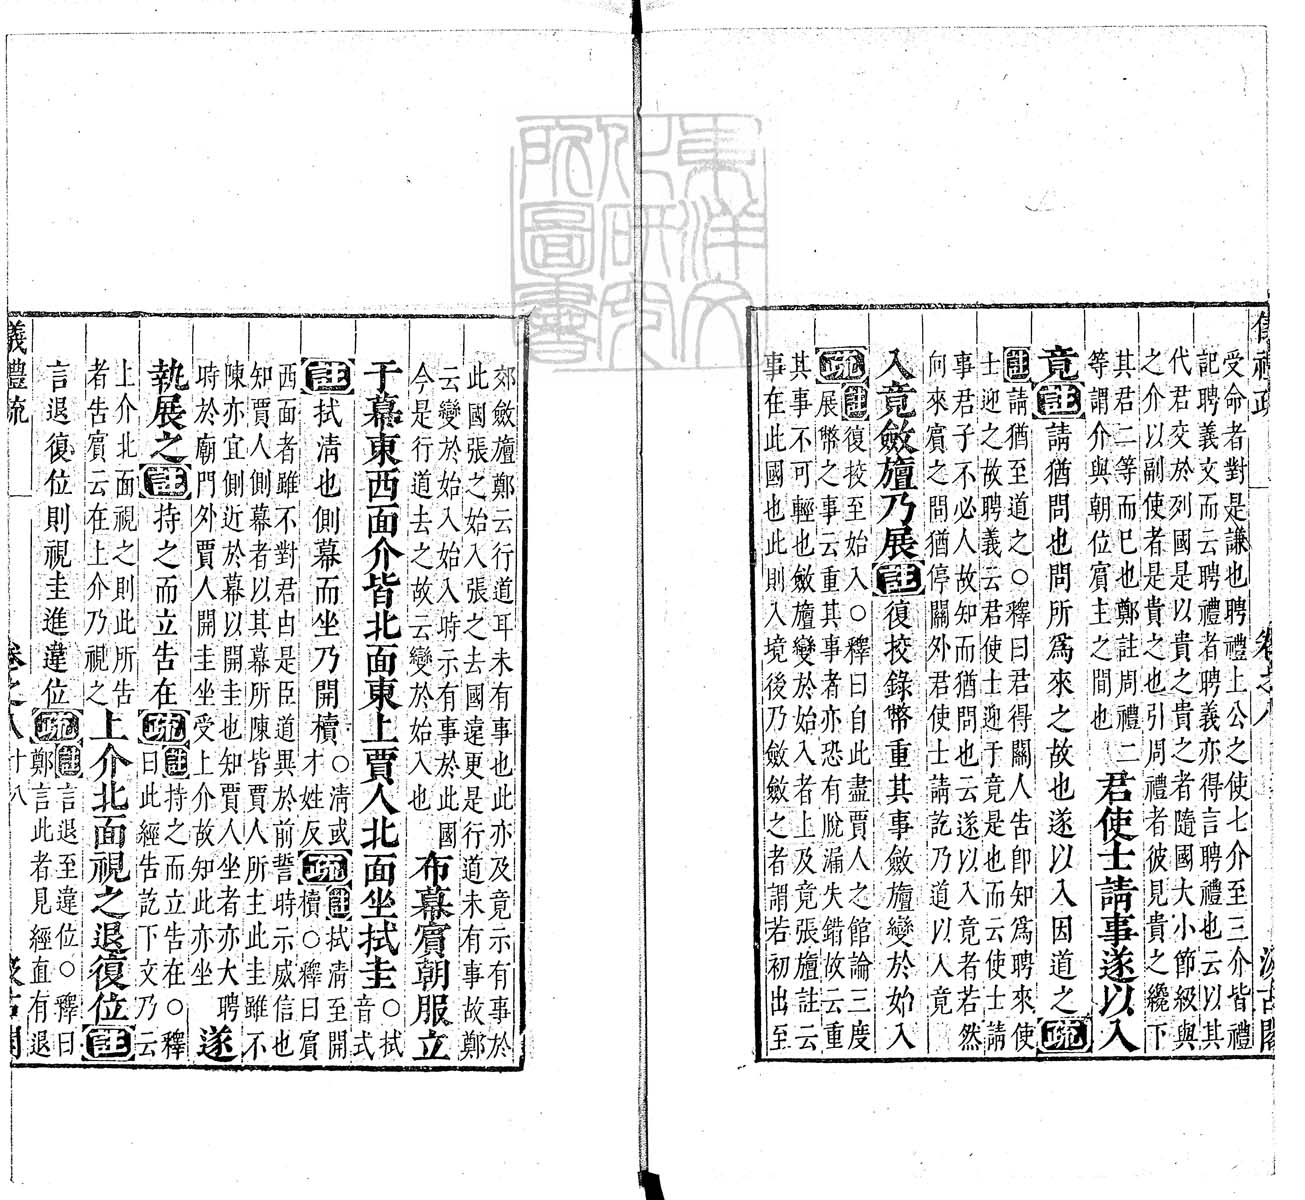 受命者對是謙也聘禮上公之使七介至三介皆禮
記聘義文而云聘禮者聘義亦得言聘禮也云以其
代君交於列國是以貴之貴之者隨國大小節級與
之介以副使者是貴之也引周禮者彼見貴之纔下
其君二等而巳也鄭註周禮二
等謂介與朝位賓主之間也
君使士請事遂以入
竟註請猶問也問所爲來之故也遂以入因道之疏
註請猶至道之○釋曰君得關人告卽知爲聘來使
士迎之故聘義云君使士迎于竟是也而云使士請
事君子不必人故知而猶問也云遂以入竟者若然
向來賓之問猶停關外君使士請訖乃道以入竟
入竟斂旜乃展註復挍錄幣重其事斂旜變於始入
疏註復挍至始入○釋曰自此盡賈人之館論三度
展幣之事云重其事者亦恐有脫漏失錯故云重
其事不可輕也斂旜變於始入者上及竟張旜註云
事在此國也此則入境後乃斂斂之者謂若初出至
郊斂旜鄭云行道耳未有事也此亦及竟示有事於
此國張之始入張之去國遠更是行道未有事故鄭
云變於始入始入時示有事於此國
今是行道去之故云變於始入也
布幕賓朝服立
于幕東西面介皆北面東上賈人北面坐拭圭○拭音式
註拭清也側幕而坐乃開櫝○清或才姓反疏註拭清至開櫝○釋曰賓
西面者雖不對君由是臣道異於前誓時示威信也
知賈人側幕者以其幕所陳皆賈人所主此圭雖不
陳亦宜側近於幕以開圭也知賈人坐者亦大聘
時於廟門外賈人開圭坐受上介故知此亦坐
遂
執展之註持之而立告在疏註持之而立告在○釋曰此經告訖下文乃云
上介北面視之則此所告
者告賓云在上介乃視之
上介北面視之退復位註
言退復位則視圭進違位疏註言退至違位○釋曰鄭言此者見經直有退
儀禮疏
卷之八
十八
汲古閣